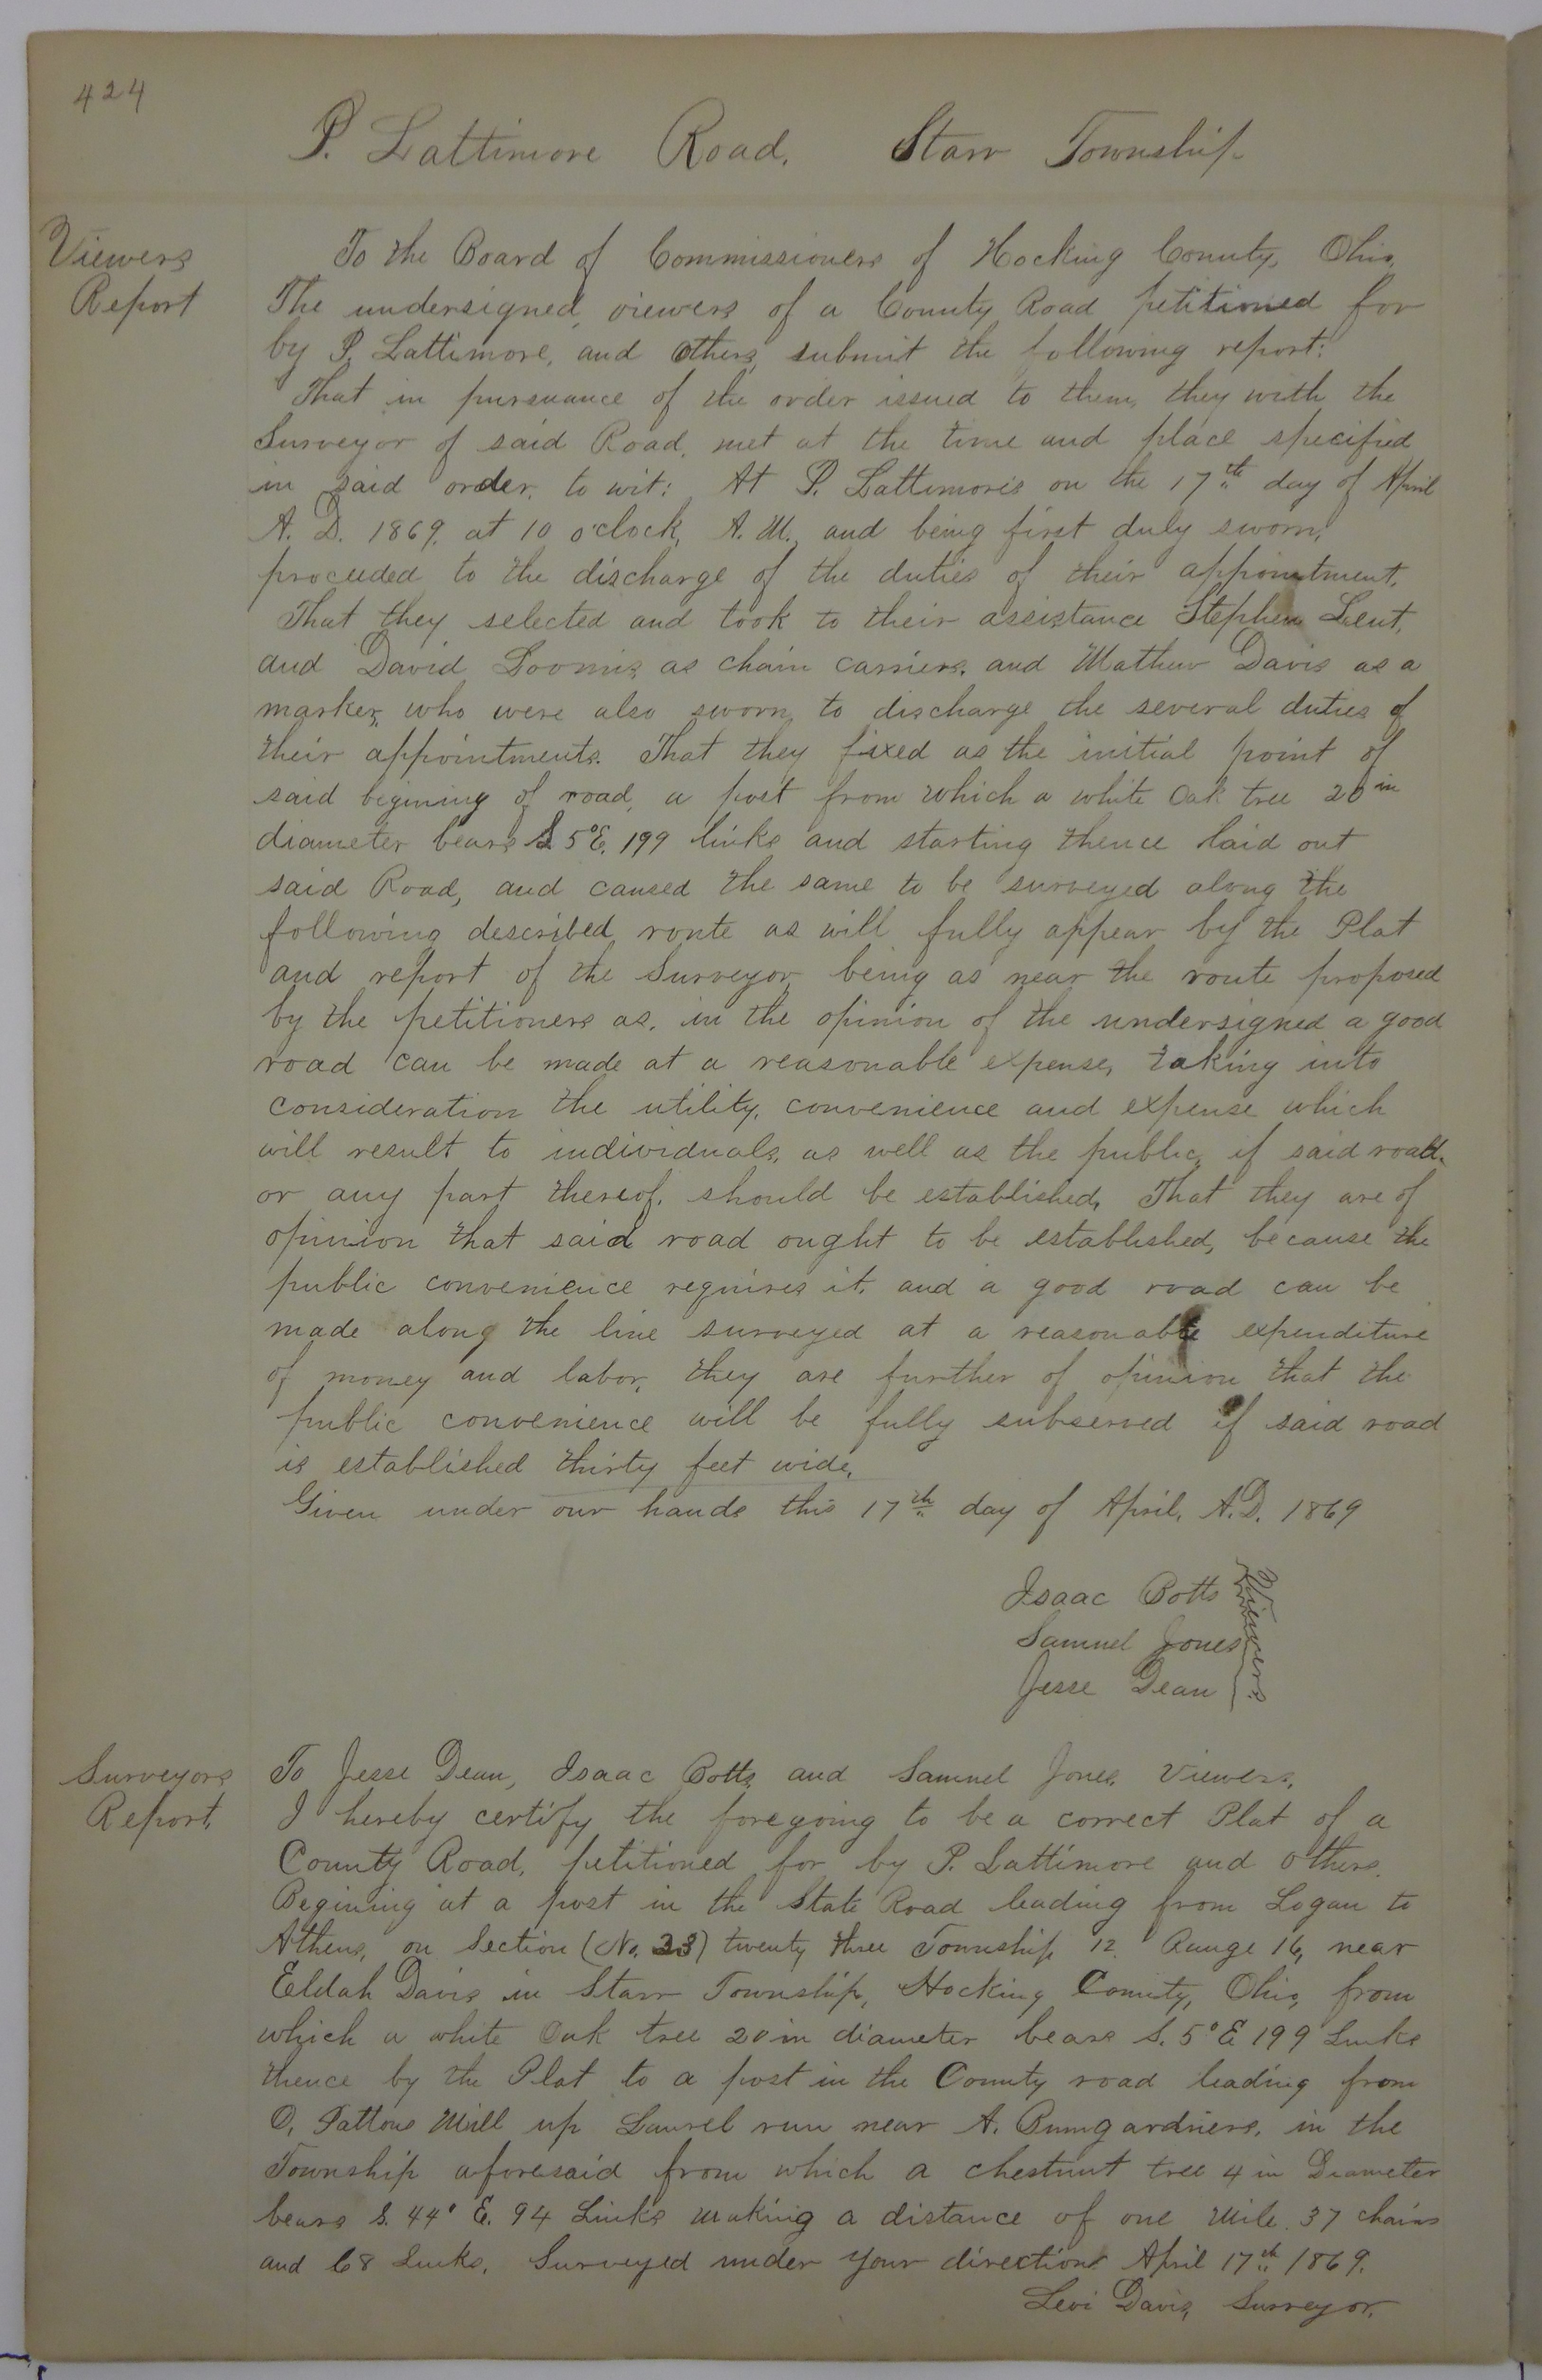 424
P. Lattimore Road. Starr Township
Viewers
Report
To the Board of Commissioners of Hocking County, Ohio,
The undersigned, viewers of a County Road petitioned for
by P. Lattimore, and others, submit the following report:
That in pursuance of the order issued to them, they with the
Surveyor of said Road, met at the time and place specified
in said order, to wit: At P. Lattimore's on the 17th day of April
A. D. 1869, at 10 o'clock, A. M., and being first duly sworn,
proceeded to the discharge of the duties of their appointment.
That they selected and took to their assistance Stephen Lent,
and David Loomis, as chain carriers, and Mathew Davis as a
marker, who were also sworn, to discharge the several duties of
their appointments. That they fixed as the initial point of
said begining of road, a post from which a white Oak tree 20 in
diameter bears S 5° E. 199 links and starting thence laid out
said Road, and caused the same to be surveyed along the
following described route as will fully appear by the Plat
and report of the Surveyor, being as near the route proposed
by the petitioners as, in the opinion of the undersigned a good
road can be made at a reasonable expense, taking into
consideration the utility, convenience and expense which
will result to individuals, as well as the public, if said road.
or any part thereof, should be established, That they are of
opinion that said road ought to be established, because the
public convenience requires it, and a good road can be
made along the line surveyed at a reasonable expenditure
of money and labor, they are further of opinion that the
public convenience will be fully subserved if said road
is established thirty feet wide,
Given under our hands this 17th day of April, A.D. 1869
Isaac Botts
Samuel Jones
Jesse Dean
Viewers
Surveyors
Report,
To Jesse Dean, Isaac Botts, and Samuel Jones, Viewers,
I hereby certify the foregoing to be a correct Plat of a
County Road, petitioned for by P. Lattimore and others.
Begining at a post in the State Road leading from Logan to
Athens, on Section (No. 23) twenty three Township 12 Range 16, near
Eldah Davis in Starr Township, Hocking County, Ohio, from
which a white Oak tree 20 in diameter bears S. 5° E 199 Links
thence by the Plat to a post in the County road leading from
O, Pattons Mill up Laurel run near A. Bumgardners, in the
Township aforesaid from which a chestnut tree 4 in Diameter
bears S. 44° E. 94 Links making a distance of one Mile 37 chains
and 68 Links. Surveyed under your direction April 17th 1869.
Levi Davis, Surveyor.